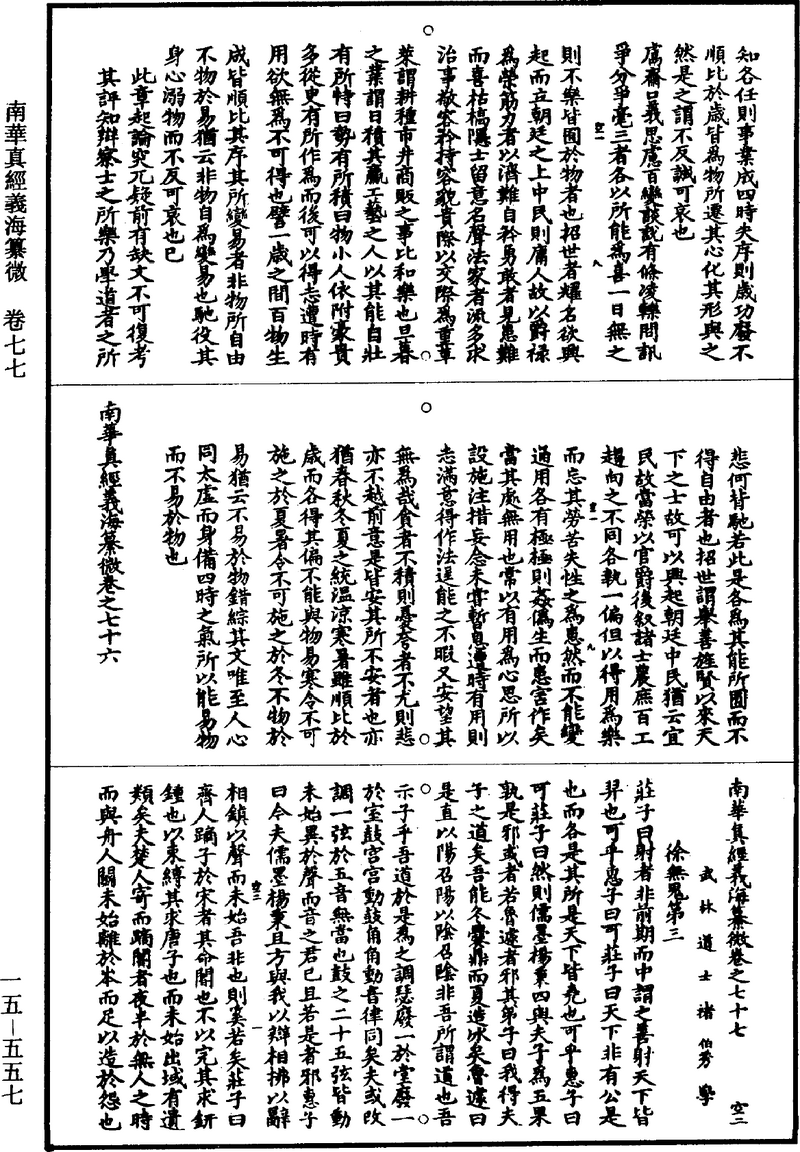 南華真經義海纂微　卷七七
知各任則事業成四時失序則歲功廢不
順比於歲皆為物所遷其心化其形與之
然是之謂不反誠可哀也
鬳齋口義思慮百變談說有條凌轢問訊
爭分爭毫三者各以所能為喜一日無之
空一
則不樂皆囿於物者也招世者耀名欲興
八
起而立朝廷之上中民則庸人故以爵祿
為榮筋力者以濟難自矜勇敢者見患難
而喜枯槁隱士留意名聲法家者流多求
治事敬容矜持容貌貴際以交際為重草
萊謂耕種市井商販之事比和樂也旦暮
之業謂日積其贏工藝之人以其能自壯
有所恃曰勢有所積曰物小人依附豪貴
多從更有所作為而後可以得志遭時有
用欲無為不可得也譬一歲之間百物生
成皆順比其序其所變易者非物所自由
不物於易猶云非物自為變易也馳役其
身心溺物而不反可哀也已
此章起論突兀疑前有缺文不可復考
其評知辯察士之所樂乃學道者之所
悲何皆馳若此是各為其能所囿而不
得自由者也招世謂舉善旌賢以來天
下之士故可以興起朝廷中民猶云宜
民故當榮以官爵後叙諸士農庶百工
趨向之不同各執一偏但以得用為樂
空一
而忘其勞苦失性之為患然而不能變
九
通用各有極極則姦偽生而患害作矣
當其處無用也常以有用為心思所以
設施注措妄念未嘗暫息遭時有用則
志滿意得作法逞能之不暇又安望其
無為哉貪者不積則憂夸者不尤則悲
亦不越前意是皆安其所不安者也亦
猶春秋冬夏之統溫涼寒暑雖順比於
歲而各得其偏不能與物易寒令不可
施之於夏暑令不可施之於冬不物於
易猶云不易於物錯綜其文唯至人心
同太虛而身備四時之氣所以能易物
而不易於物也
南華真經義海纂微卷之七十六
南華真經義海纂微卷之七十七　空二
武林道士褚伯秀學
徐無鬼第三
莊子曰射者非前期而中謂之善射天下皆
羿也可乎惠子曰可莊子曰天下非有公是
也而各是其所是天下皆堯也可乎惠子曰
可莊子曰然則儒墨楊秉四與夫子為五果
孰是邪或者若魯遽者邪其弟子曰我得夫
子之道矣吾能冬爨鼎而夏造冰矣魯遽曰
是直以陽召陽以陰召陰非吾所謂道也吾
示子乎吾道於是為之調瑟廢一於堂廢一
於室鼓宮宮動鼓角角動音律同矣夫或改
調一弦於五音無當也鼓之二十五弦皆動
未始異於聲而音之君已且若是者邪惠子
曰今夫儒墨楊秉且方與我以辯相拂以辭
空二
一
相鎮以聲而未始吾非也則奚若矣莊子曰
齊人蹢子於宋者其命閽也不以完其求鈃
鍾也以束縛其求唐子也而未始出域有遺
類矣夫楚人寄而蹢閽者夜半於無人之時
而與舟人鬭未始離於岑而足以造於怨也
一五—五五七